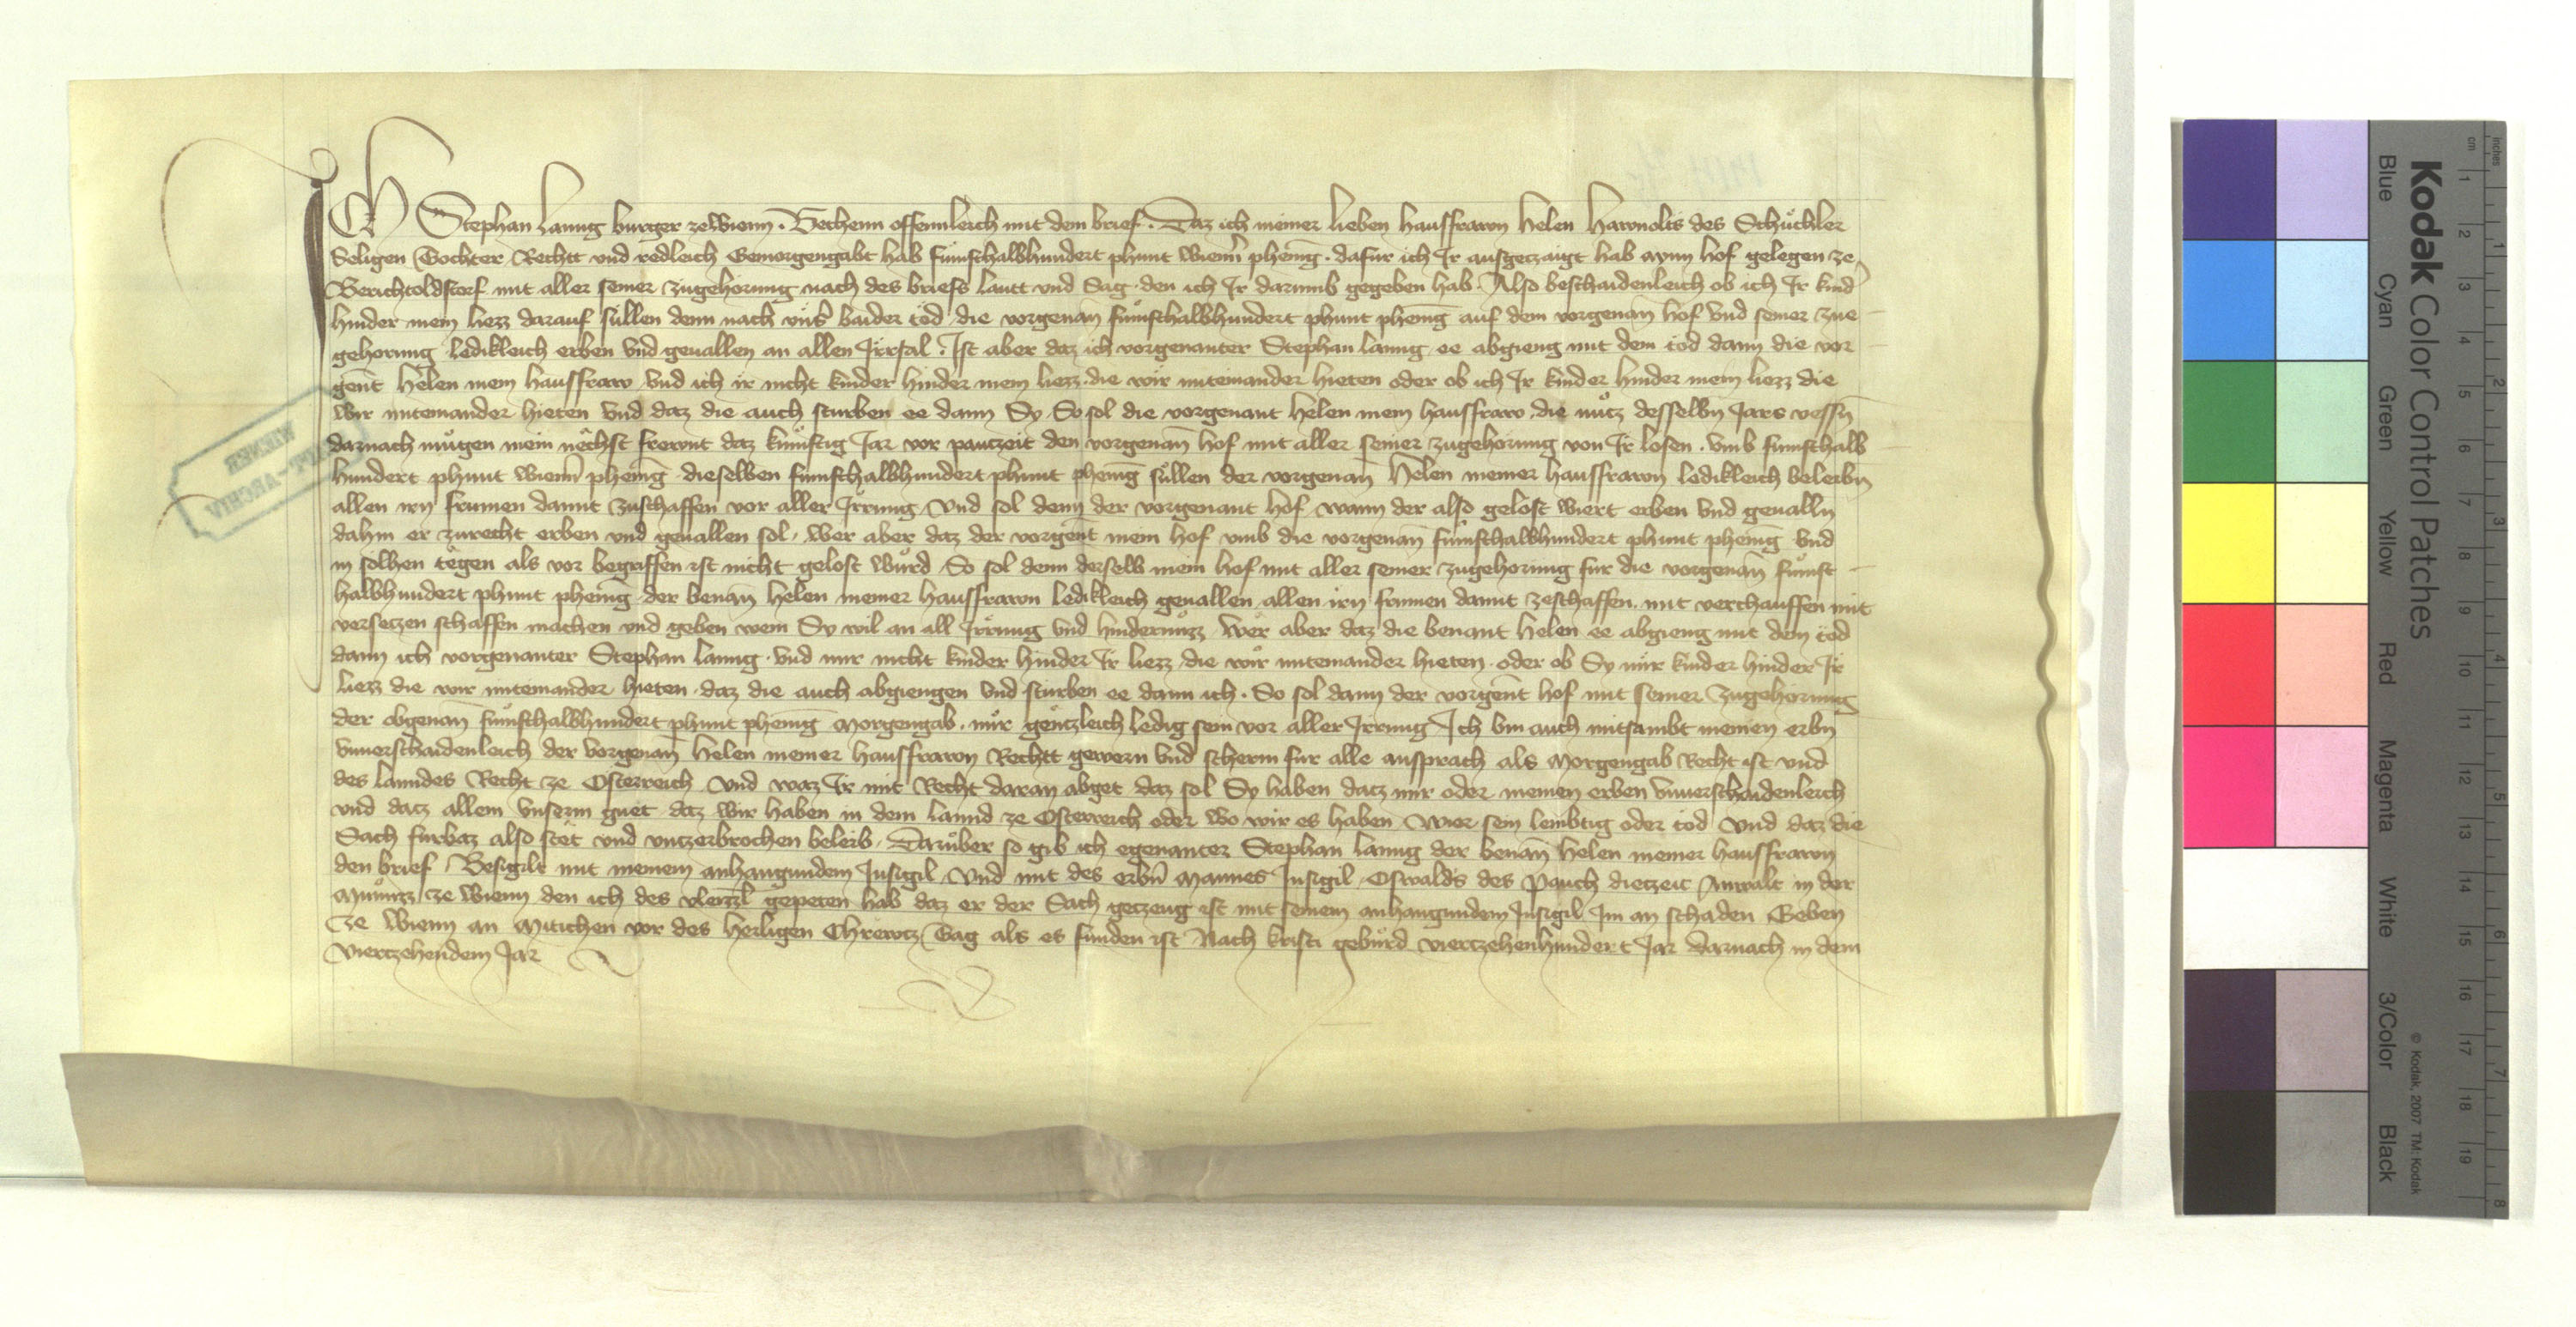 Ich Stephan Lanng burger ze Wienn. Vechenn offennleich mit dem brief. Daz ich meiner lieben hausfrawn Helen Hawnolts des Schuͤchler
Seligen Tochter Recht vnd redleich Gemorgengabt hab fumfthalbhundert phunt wienn̄ phenīg. dafur ich Ir ausgeczaigt hab aynn hof gelegen ze
Berichtoldstorf mit aller seiner zugehorung nach des briefs lautt vnd Sag. den ich Ir darumb gegeben hab. Also beschaidenleich ob ich Ir kind
hinder mein liezz darauf sullen denn nach vns̄ baider tod die vorgenan̄ fumfthalbhundert phunt phenīg auf dem vorgenan̄ hof vnd seiner zue
gehorung ledikleich erben vnd geuallen an allen Irrsal. Ist aber daz ich vorgenanter Stephan Lanng ee abgieng mit dem tod dann die vor
gen̄t Helen mein hausfraw vnd ich ir nicht kinder hinder mein liezz. die wir miteinander hieten oder ob ich Ir kinder hinder mein liezz die
wir miteinander hieten vnd daz die auch sturben ee dann Sy. So sol die vorgenant Helen mein hausfraw. die nuͤtz desselbn̄ Jars vessn̄
darnach muͤgen mein nechst frewnt daz kumftig Jar vor pauczeit den vorgenan̄ hof mit aller seiner zugehorung von Ir losen. vmb fumfthalb
hundert phunt wienn̄ phenīg dieselben fumfthalbhundert phunt phenīg sullen der vorgenan̄ Helen meiner hausfrawn ledikleich beleibn̄
allen irn̄ frumen damit zuschaffen vor aller Irrung. Vnd sol denn der vorgenant hof wann der also gelost wiert erben vnd geualln̄
dahin er zurecht erben vnd geuallen sol. Wer aber daz der vorgen̄t mein hof vmb die vorgenan̄ fumfthalbhundert phunt phenīg vnd
in solhen tegen als vor begriffen ist nicht gelost wuͤrd. So sol denn derselb mein hof mit aller seiner zugehorung fur die vorgenan̄ fumft
halbhundert phunt phenīg der benan̄ Helen meiner hausfrawn ledikleich geuallen allen irn̄ frumen damit zeschaffen. mit verchauffen mit
versetzen schaffen machen vnd geben wem Sy wil an all Irrung vnd hindernuͤzz. Wer aber daz die benant Helen ee abgieng mit dem tod
dann ich vorgenanter Stephan Lanng. vnd mir nicht kinder hinder Ir liezz. die wir miteinander hieten. oder ob Sy mir kinder hinder Ir
liezz die wir miteinander hieten. daz die auch abgiengen vnd sturben ee dann ich. So sol dann der vorgen̄t hof mit seiner zugehorung
der obgenan̄ fumfthalbhundert phunt phenīg Morgengab. mir genczleich ledig sein vor aller Irrung. Ich bin auch mitsambt meinen erbn̄
vnuerschaidenleich der vorgenan̄ Helen meiner hausfrawn Rechtt gewern vnd scherm fur alle ansprach als Morgengab Recht ist vnd
des lanndes Recht ze Osterreich. Vnd waz Ir mit Recht daran abget daz sol Sy haben dacz mir oder meinen erben vnuerschaidenleich
vnd dacz allem vnserm guet daz wir haben in dem Lannd ze Osterreich oder wo wir es haben. Wier sein lembtig oder tod. Vnd daz die
Sach furbaz also stet vnd vnczerbrochen beleib. Daruber so gib ich egenanter Stephan Lanng der benan̄ Helen meiner hausfrawn
den brief. Besigilt mit meinem anhangundem Insigil. Vnd mit des erbn̄ Mannes Insigil Oswalds des Pauch dieczeit Anwalt in der
Munnzz ze Wienn den ich des vleizzl̄ gepeten hab daz er der Sach geczeug ist mit seinem anhangundem Insigil Im an schaden. Geben
ze Wienn an Mitichen vor des Heiligen Chrewcz Tag als es funden ist Nach kristi geburd viertzehenhundert Jar darnach in dem
viertzehendem Jar
WIENER
STADT-ARCHIV
Kodak Color Control Patches
© Kodak, 2007 TM: Kodak
Blue Cyan Green Yellow Red Magenta White 3/Color Black
cm 1 2 3 4 5 6 7 8 9 10 11 12 13 14 15 16 17 18 19
inches 1 2 3 4 5 6 7 8